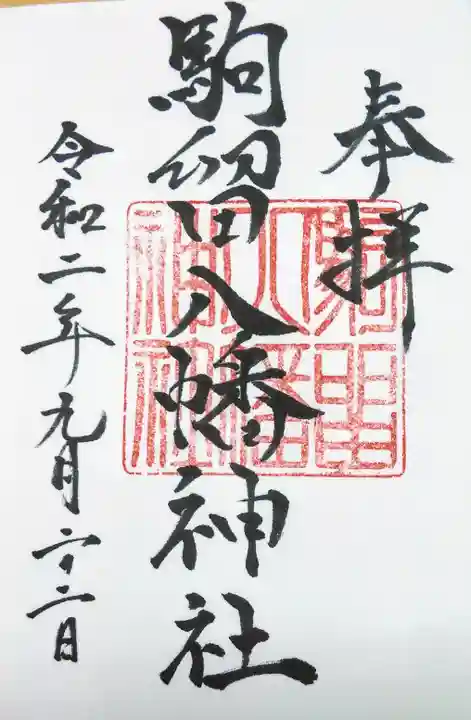 奉拝
駒留八幡神社
令和二年九月二十二日
駒留
八幡
神社